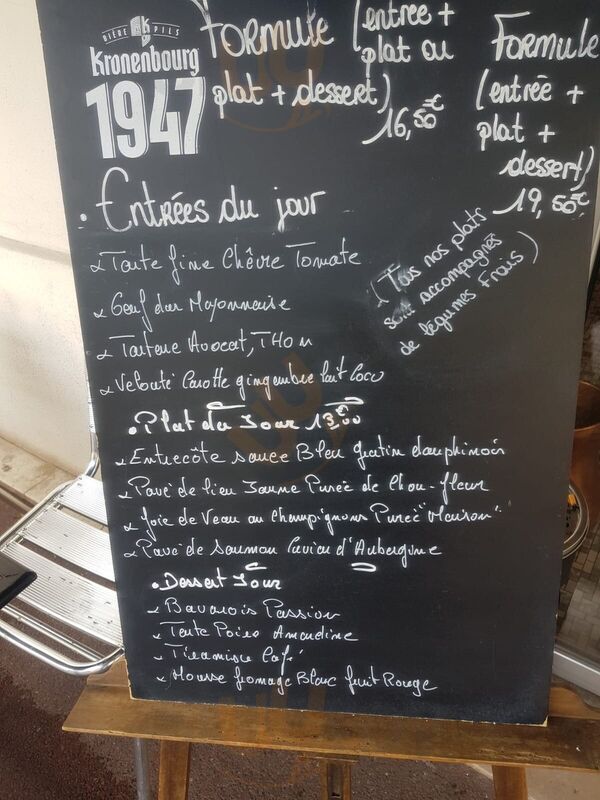 BIÈRE K PILS
Kronenbourg
1947
FORMULE (entrée +
plat ou
plat + dessert)
16,50€
FORMULE
(entrée +
plat +
dessert)
19,50€
• Entrées du jour
Tarte fine Chèvre Tomate
Oeuf dur Mayonnaise
Tartare Avocat, THon
Velouté Carotte gingembre lait Coco
(Tous nos plats
sont accompagnés
de légumes frais)
• Plat du Jour 13€00
Entrecôte sauce Bleu gratin dauphinois
Pavé de lieu Jaune Purée de Chou-fleur
Joie de Veau au Champignons Purée "Maison"
Pavé de saumon Caviar d'Aubergine
• Dessert Jour
Bavarois Passion
Tarte Poires Amandine
Tiramisu Café
Mousse fromage Blanc fruit Rouge